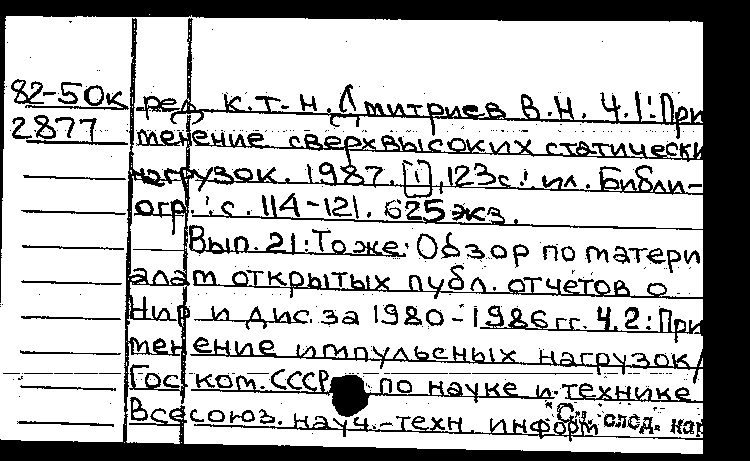 82-50к ред. к.т.н. Дмитриев В.Н. Ч.1: При
2877 менение сверхвысоких статически
нагрузок. 1987. [1], 123с.: ил. Библи-
огр.: с. 114-121. 625 экз.
Вып. 21: То же: Обзор по матери
алам открытых публ. отчетов о
Нир и дис. за 1980-1986 гг. Ч.2: При
менение импульсных нагрузок/
Гос. ком. СССР по науке и технике
Всесоюз. науч.-техн. информ
См. след. кар